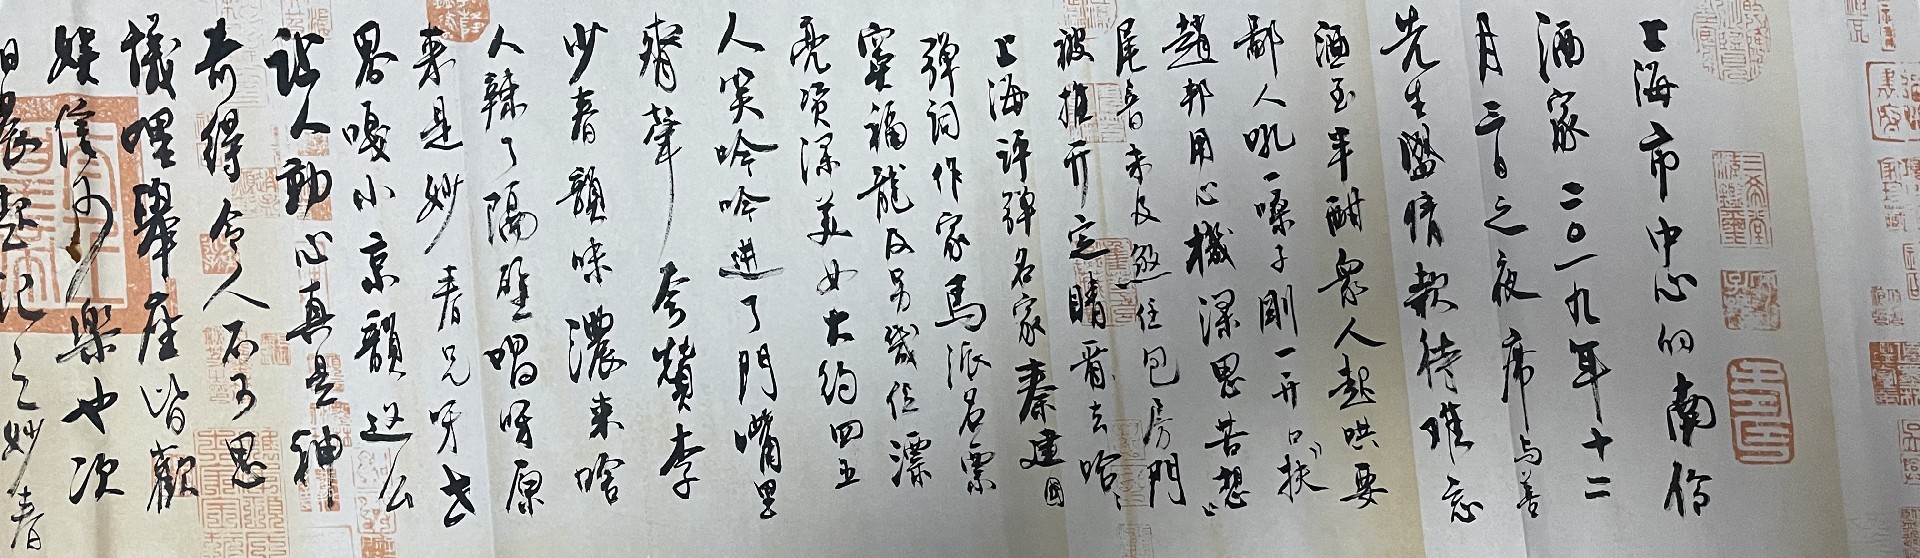 上海市中心的南伶
酒家二〇一九年十二
月三日之夜席与善
先生盛情款待难忘
酒至半酣众人起哄要
鄙人吼一嗓子刚一开口"扶
赵邦用心机深思苦想"
尾音未及逸住包房门
被推开定睛看去哈哈
上海评弹名家秦建国
弹词作家马派名票
窦福龙及另几位漂
亮资深美女大约四五
人笑吟吟进了门嘴里
齐声夸赞李
少春韵味浓来啥
人辣了隔壁唱呀原
来是妙春兄呀老
暑嘎小京韵这么
让人动心真是神
奇得令人不可思
议哩举座皆欢
娱信可乐也次
日晨起记之妙春